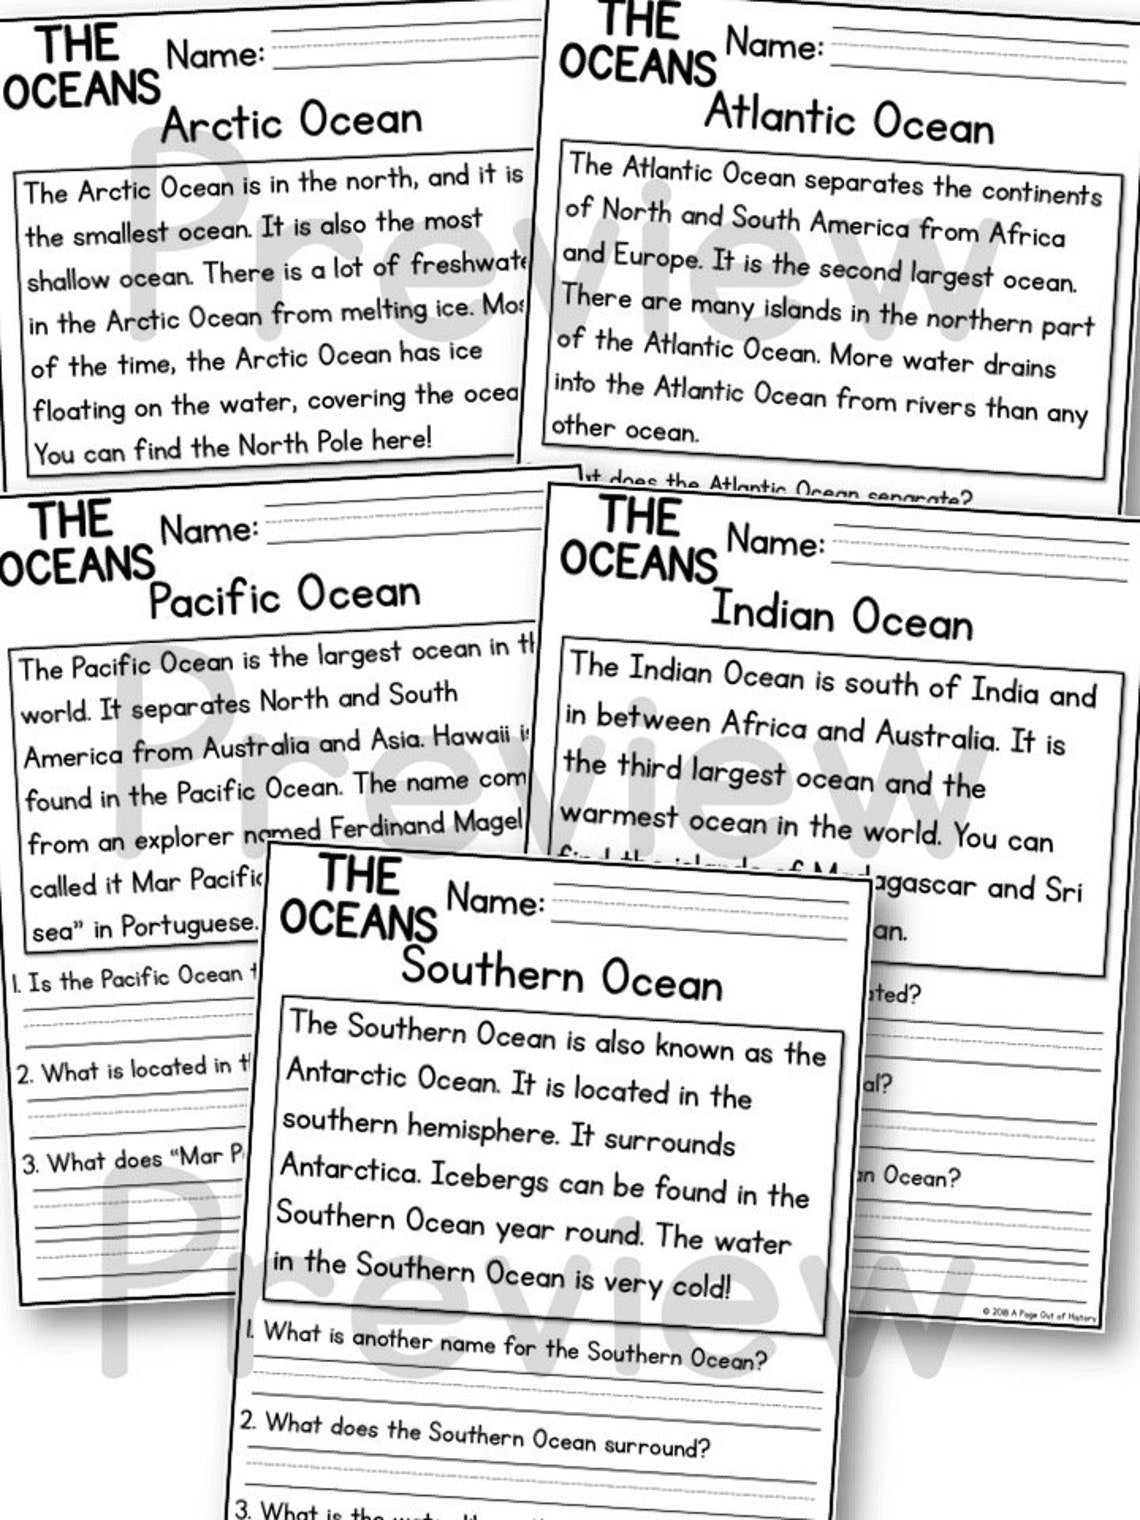 THE
OCEANS
Name:
Arctic Ocean
The Arctic Ocean is in the north, and it is
the smallest ocean. It is also the most
shallow ocean. There is a lot of
in the Arctic Ocean from melting ice.
of the time, the Arctic Ocean has ice
floating on the water, covering the
You can find the North Pole here!
THE
OCEANS
Name:
Atlantic Ocean
The Atlantic Ocean separates the continents
of North and South America from Africa
and Europe. It is the second largest ocean.
There are many islands in the northern part
of the Atlantic Ocean. More water drains
into the Atlantic Ocean from rivers than any
other ocean.
does the Atlantic Ocean separate?
Preview
THE
OCEANS
Name:
Pacific Ocean
The Pacific Ocean is the largest ocean in
world. It separates North and South
America from Australia and Asia. Hawaii
found in the Pacific Ocean. The name
from an explorer named Ferdinand
called it Mar
sea" in Portuguese.
1. Is the Pacific Ocean
2. What is located in
3. What does "Mar
THE
OCEANS
Name:
Indian Ocean
The Indian Ocean is south of India and
in between Africa and Australia. It is
the third largest ocean and the
warmest ocean in the world. You can
find the islands of Madagascar and Sri
Ocean?
© 2018 A Page Out of History
Preview
THE
OCEANS
Name:
Southern Ocean
The Southern Ocean is also known as the
Antarctic Ocean. It is located in the
southern hemisphere. It surrounds
Antarctica. Icebergs can be found in the
Southern Ocean year round. The water
in the Southern Ocean is very cold!
1. What is another name for the Southern Ocean?
2. What does the Southern Ocean surround?
3. What is the water
Preview